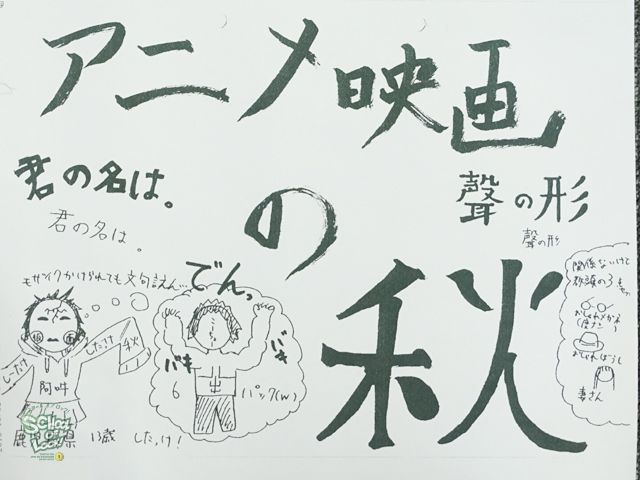 アニメ映画
の
秋
君の名は。
君の名は。
聲の形
聲の形
モザイクかけられても文句言えん…
でんっ
バキ
バキ
6
パック(w)
出
しったけ
しったけ
秋
阿吽
関係ないけど
おしゃれぼうし
妻さん
SCHOOL
OF
LOCK!
鹿児島県 13歳 しったけ!